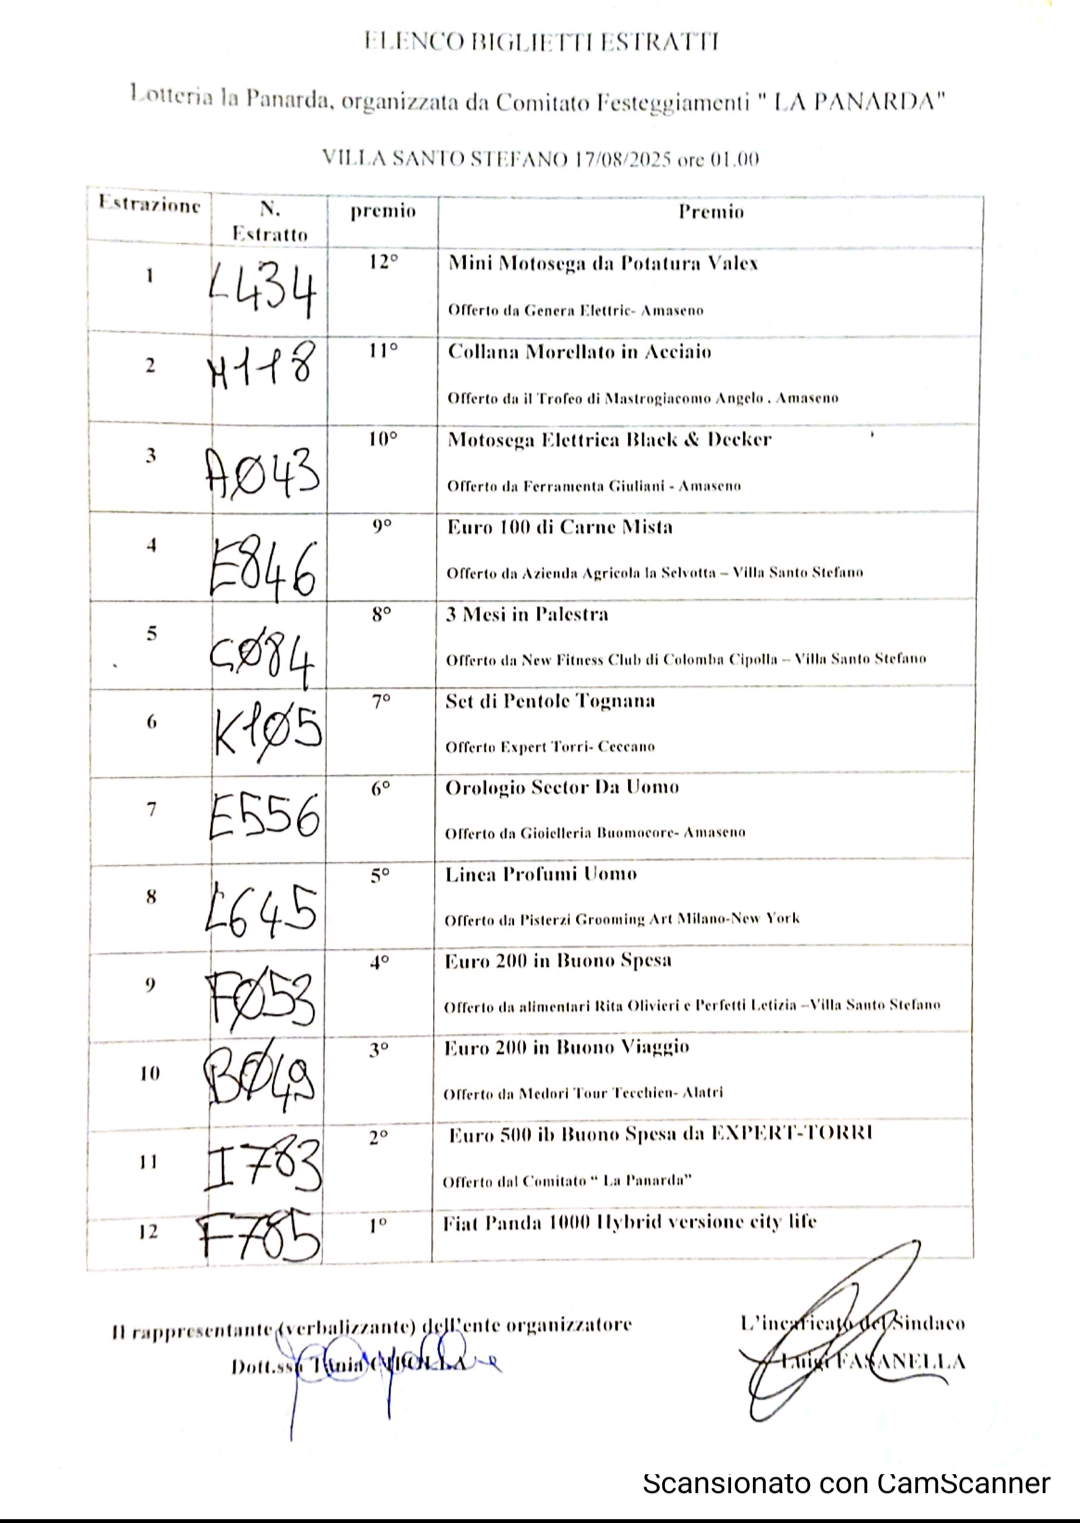 ELENCO BIGLIETTI ESTRATTI
Lotteria la Panarda, organizzata da Comitato Festeggiamenti " LA PANARDA"
VILLA SANTO STEFANO 17/08/2025 ore 01.00
Estrazione N. Estratto premio Premio
1 L434 12° Mini Motosega da Potatura Valex
Offerto da Genera Elettric- Amaseno
2 H118 11° Collana Morellato in Acciaio
Offerto da il Trofeo di Mastrogiacomo Angelo . Amaseno
3 AØ43 10° Motosega Elettrica Black & Decker
Offerto da Ferramenta Giuliani - Amaseno
4 E846 9° Euro 100 di Carne Mista
Offerto da Azienda Agricola la Selvotta – Villa Santo Stefano
5 GØ84 8° 3 Mesi in Palestra
Offerto da New Fitness Club di Colomba Cipolla – Villa Santo Stefano
6 K1Ø5 7° Set di Pentole Tognana
Offerto Expert Torri- Ceccano
7 E556 6° Orologio Sector Da Uomo
Offerto da Gioielleria Buomocore- Amaseno
8 L645 5° Linea Profumi Uomo
Offerto da Pisterzi Grooming Art Milano-New York
9 FØ53 4° Euro 200 in Buono Spesa
Offerto da alimentari Rita Olivieri e Perfetti Letizia –Villa Santo Stefano
10 BØ49 3° Euro 200 in Buono Viaggio
Offerto da Medori Tour Tecchien- Alatri
11 I783 2° Euro 500 ib Buono Spesa da EXPERT-TORRI
Offerto dal Comitato “ La Panarda”
12 F785 1° Fiat Panda 1000 Hybrid versione city life
Il rappresentante (verbalizzante) dell'ente organizzatore
L'incaricato del Sindaco
Dott.ssa Tania
Luigi FASANELLA
Scansionato con CamScanner